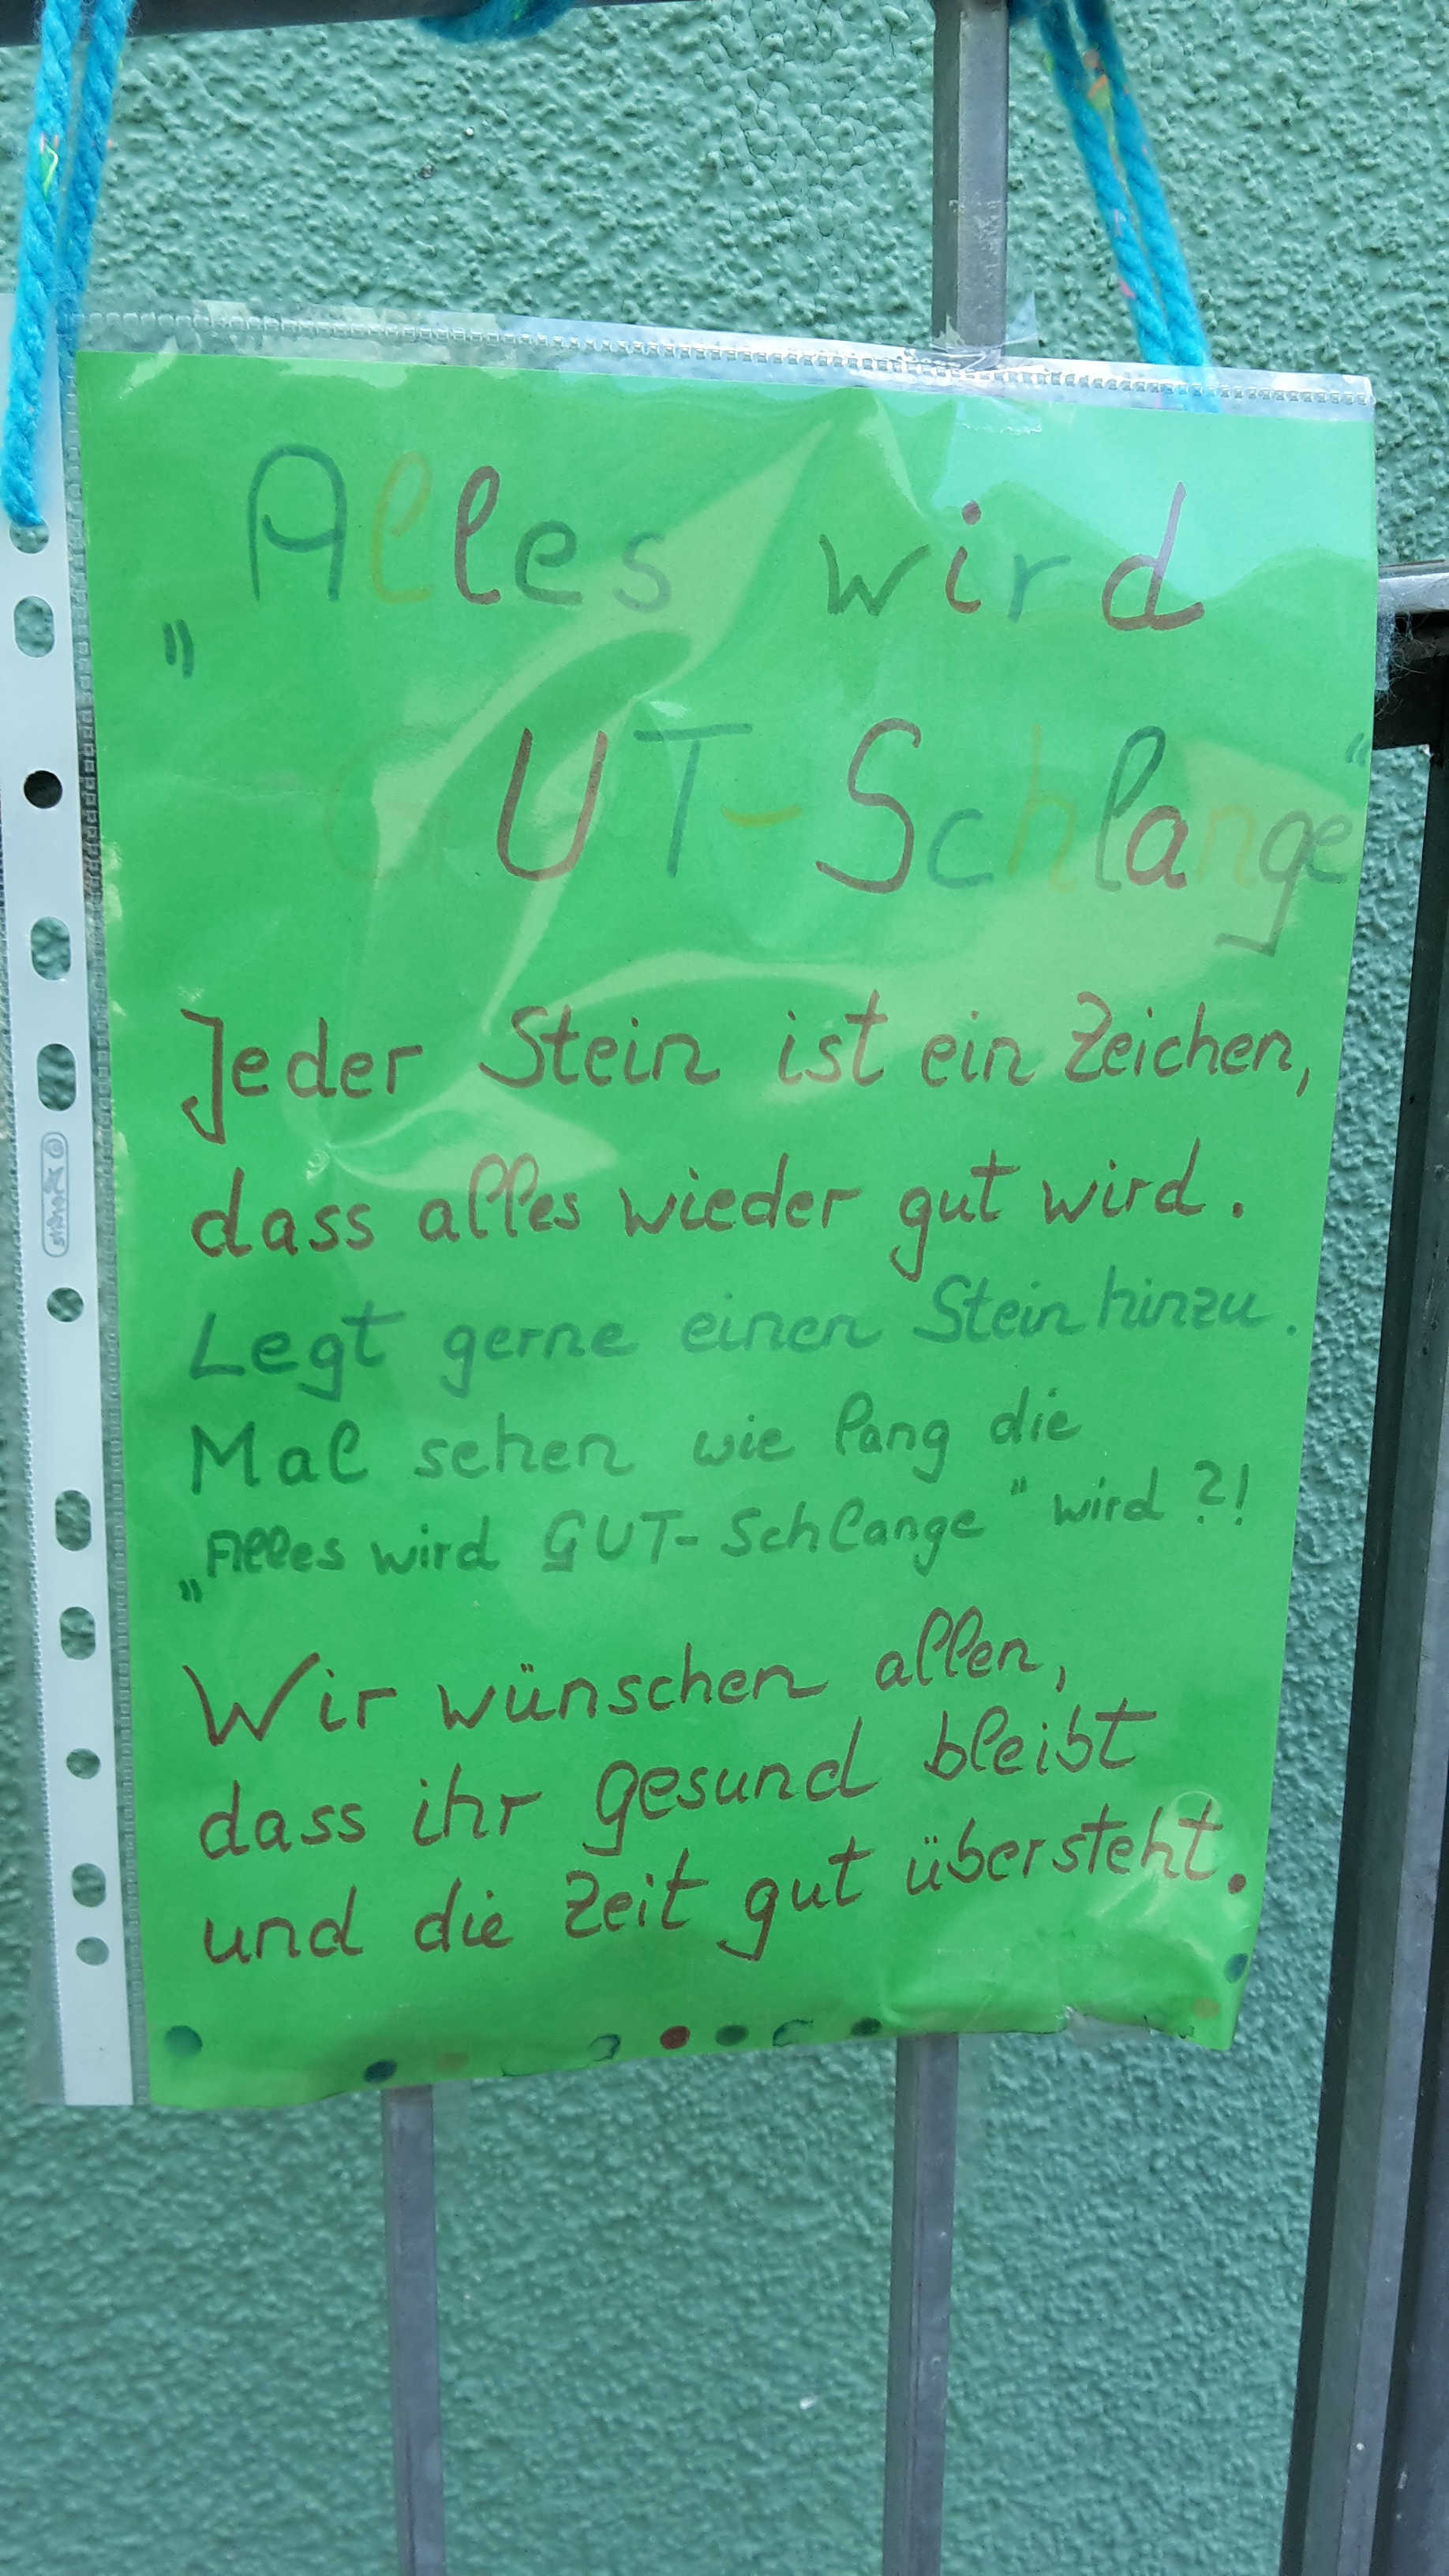 „Alles wird
GUT-Schlange“
Jeder Stein ist ein Zeichen,
dass alles wieder gut wird.
Legt gerne einen Stein hinzu.
Mal sehen wie lang die
„Alles wird GUT-Schlange“ wird?!
Wir wünschen allen,
dass ihr gesund bleibt
und die Zeit gut übersteht.